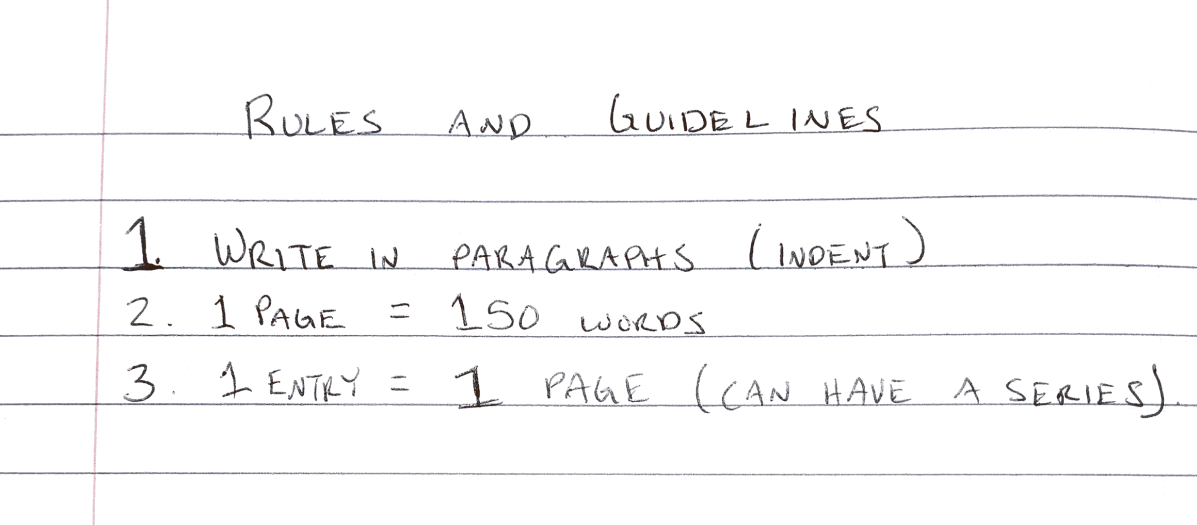 RULES AND GUIDELINES
1. WRITE IN PARAGRAPHS (INDENT)
2. 1 PAGE = 150 WORDS
3. 1 ENTRY = 1 PAGE (CAN HAVE A SERIES).